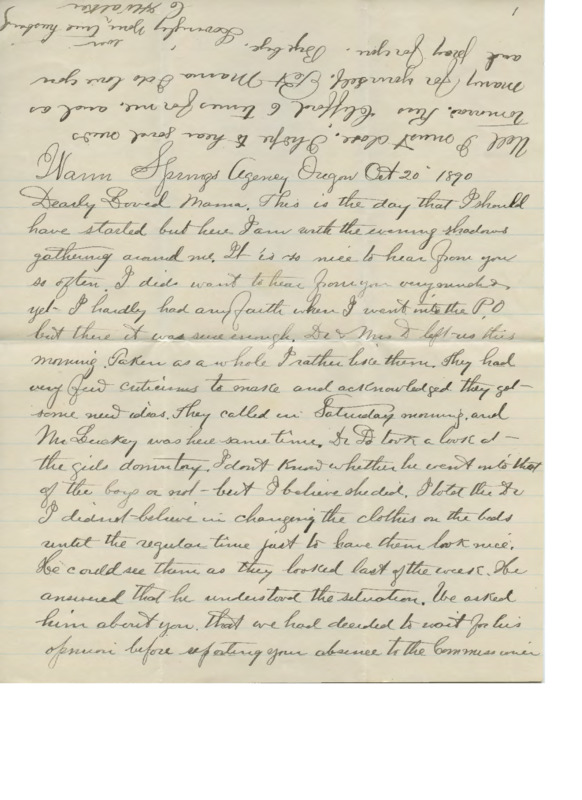 1
Warm Springs Agency Oregon Oct 20" 1890
Dearly Loved Mama. This is the day that I should
have started but here I am with the evening shadows
gathering around me. It is so nice to hear from you
so often. I did want to hear from you very much &
yet I hardly had any faith when I went into the P.O
but there it was sure enough. Dr & Mrs D left us this
morning. Taken as a whole I rather like them. They had
very few criticisms to make and acknowledged they got
some new ideas. They called in Saturday morning. and
Mr Luckey was here same time. Dr D took a look at
the girls dormitory. I dont know whether he went into that
of the boys or not - but I believe she did. I told the Dr
I did not believe in changing the clothes on the beds
until the regular time just to have them look nice.
He could see them as they looked last of the week. He
answered that he understood the situation. We asked
him about you. that we had decided to wait for his
opinion before reporting your absence to the Commissioner
Well I must close. I hope to hear good news
tomorrow. Kiss Clifford 6 times for me. and as
many for yourself. Mama I do love you
and pray for you. Bye bye.
Lovingly your true husband